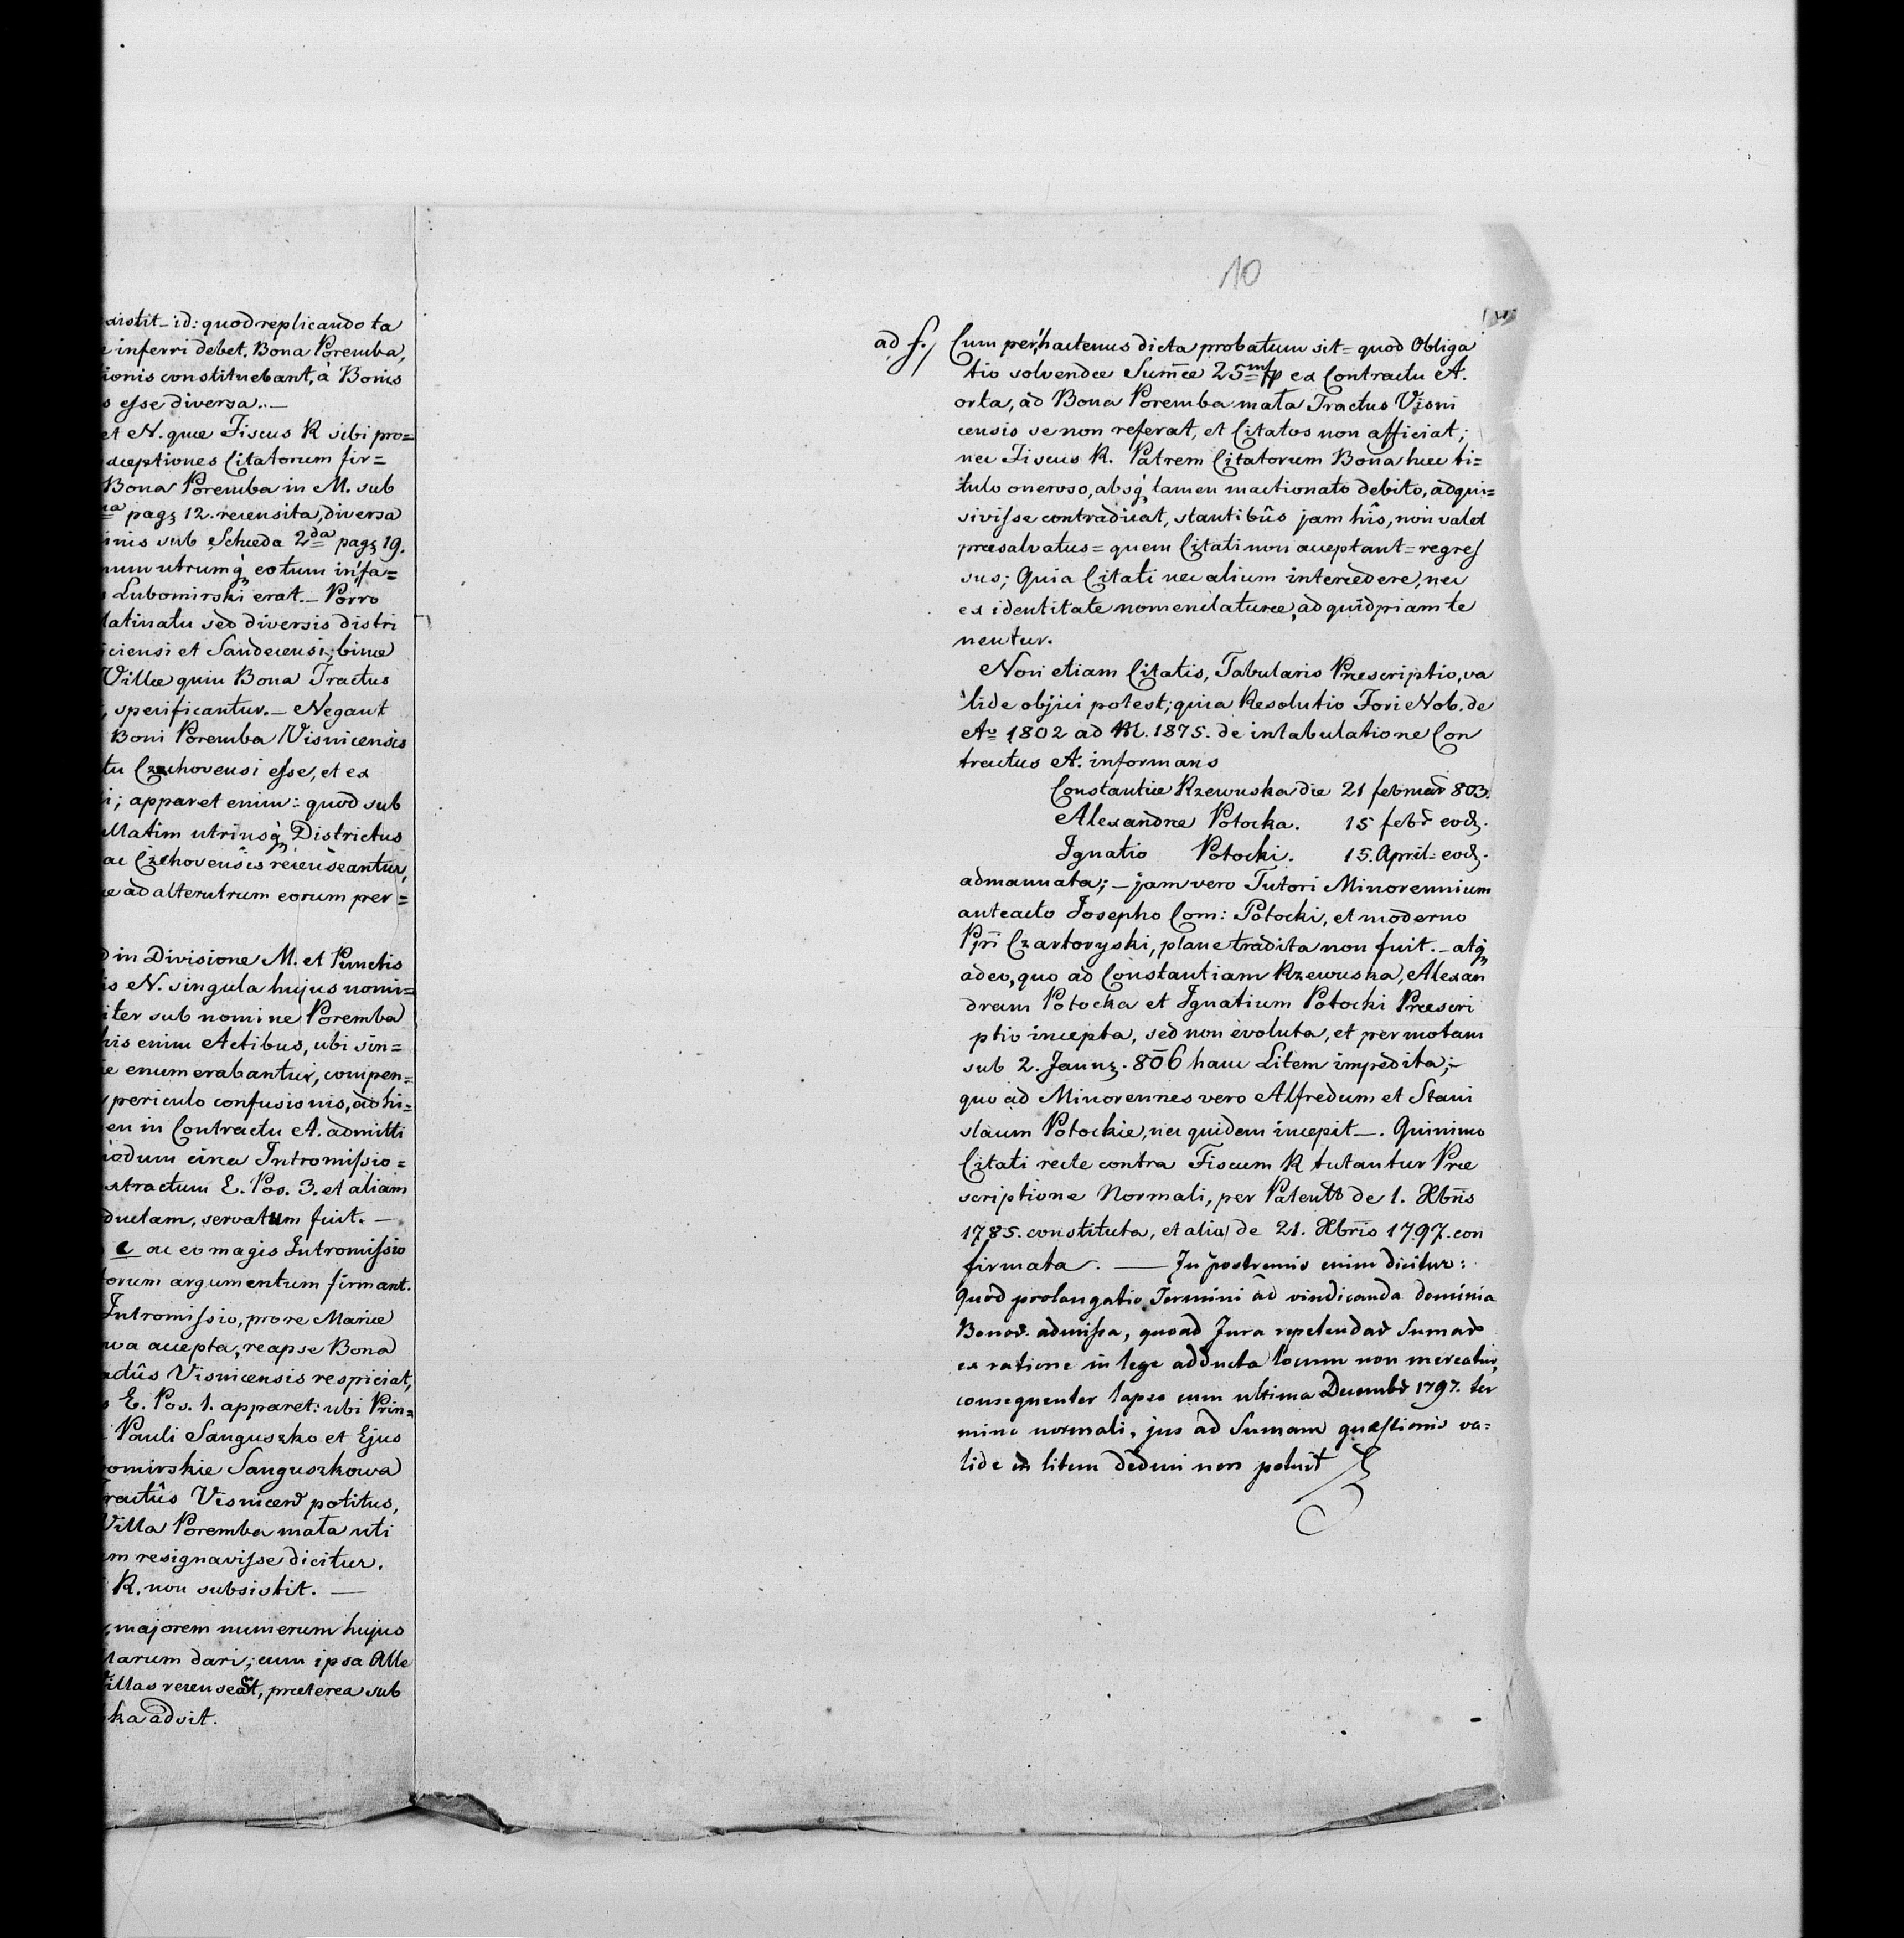 distit_id: quod replicando ta
inferri debet, Bona Poremba,
ionis constituebant, à Bonis
s esse diversa._
et N. quæ Fiscus R sibi pro=
xceptiones Citatorum fir=
Bona Poremba in M. sub
pag 12. recensita, diversa
inis sub Scheda 2da pag 19.
num utrumq eotum infa=
Lubomirski erat._ Porro
latinatu sed diversis distri
iciensi et Sandecensi; binæ
Villæ quiu Bona Tractus
, speificantur._ Negant
Boni Poremba Visnicensis
tu Czchovensi esse, et ex
i; apparet enim: quod sub
llatim utriusq Districtus
ac Czchovensis recenseantur,
e ad alterutrum eorum per=
d in Divisione M. et Punctis
is N. singula hujus nomi=
iter sub nomine Poremba
his enim Actibus, ubi sin=
e enumerabantur, compen=
periculo confusionis, adhi=
en in Contractu A. admitti
odum circa Intromissio=
xtractum E. Pos. 3. et aliam
ductam, servatum fuit. _
c ac eo magis Intromissio
orum argumentum firmant.
Intromissio, pro re Mariæ
wa accepta, reapse Bona
actûs Visnicensis respiciat,
E. Pos. 1. apparet: ubi Prin=
Pauli Sanguszko et Ejus
omirskie Sanguszkowa
ractûs Visnicens potitus,
Villa Poremba mata uti
m resignavisse dicitur.
R. non subsistit. _
majorem numerum hujus
larum dari; cum ipsa Alle
illas recenseat, præterea sub
ka adsit.
10
ad f./ Cum per hactenus dicta probatum sit= quod Obliga
tio solvendæ Sum̄æ 25m fp ex Contractu A.
orta, ad Bona Poremba mata Tractus Visni
censis se non referat, et Citatos non afficiat;
nec Fiscus R. Patrem Citatorum Bona hæc ti=
tulo oneroso, absq tamen mactionato debito, adqui=
sivisse contradicat, stantibûs jam hîs, non valet
præsalvatus= quem Citati non acceptant= regres
sus; Quia Citati nec alium intercedere, nec
ex identitate nomenclaturæ, ad quidpiam te
nentur.
Non etiam Citatis, Tabularis Præscriptio, va
lide objici potest; quia Resolutio Fori Nob. de
Ao 1802 ad N. 1875. de intabulatione Con
tractus A. informans
Constantiæ Rzewuska die 21 februar 803.
Alexandræ Potocka. 15 febr eod.
Ignatio Potocki. 15. April= eod.
admanuata; _ jam vero Tutori Minorennium
anteacto Josepho Com: Potocki, et moderno
Ppri Czartoryski, plane tradita non fuit._ atq
adeo, quo ad Constantiam Rzewuska, Alexan
dram Potocka et Ignatium Potocki Præscri
ptio incepta, sed non evoluta, et per motam
sub 2. Janu. 806 hanc Litem impedita;_
quo ad Minorennes vero Alfredum et Stani
slaum Potockie, nec quidem incepit_. Quinimo
Citati recte contra Fiscum R tutantur Præ
scriptione Normali, per Patent de 1. Xbris
1785. constituta, et alia de 21. Xbris 1797. con
firmata. _ In postremis enim dicitur:
Quod prolongatio Termini ad vindicanda dominia
Bonor. admissa, quoad Jura repetendar Sumar
ex ratione in lege adducta locum non mereatur,
consequenter lapso cum ultima Decembr 1797. ter
mino normali, jus ad Sumam quæstionis va=
lide in litem deduci non potuit